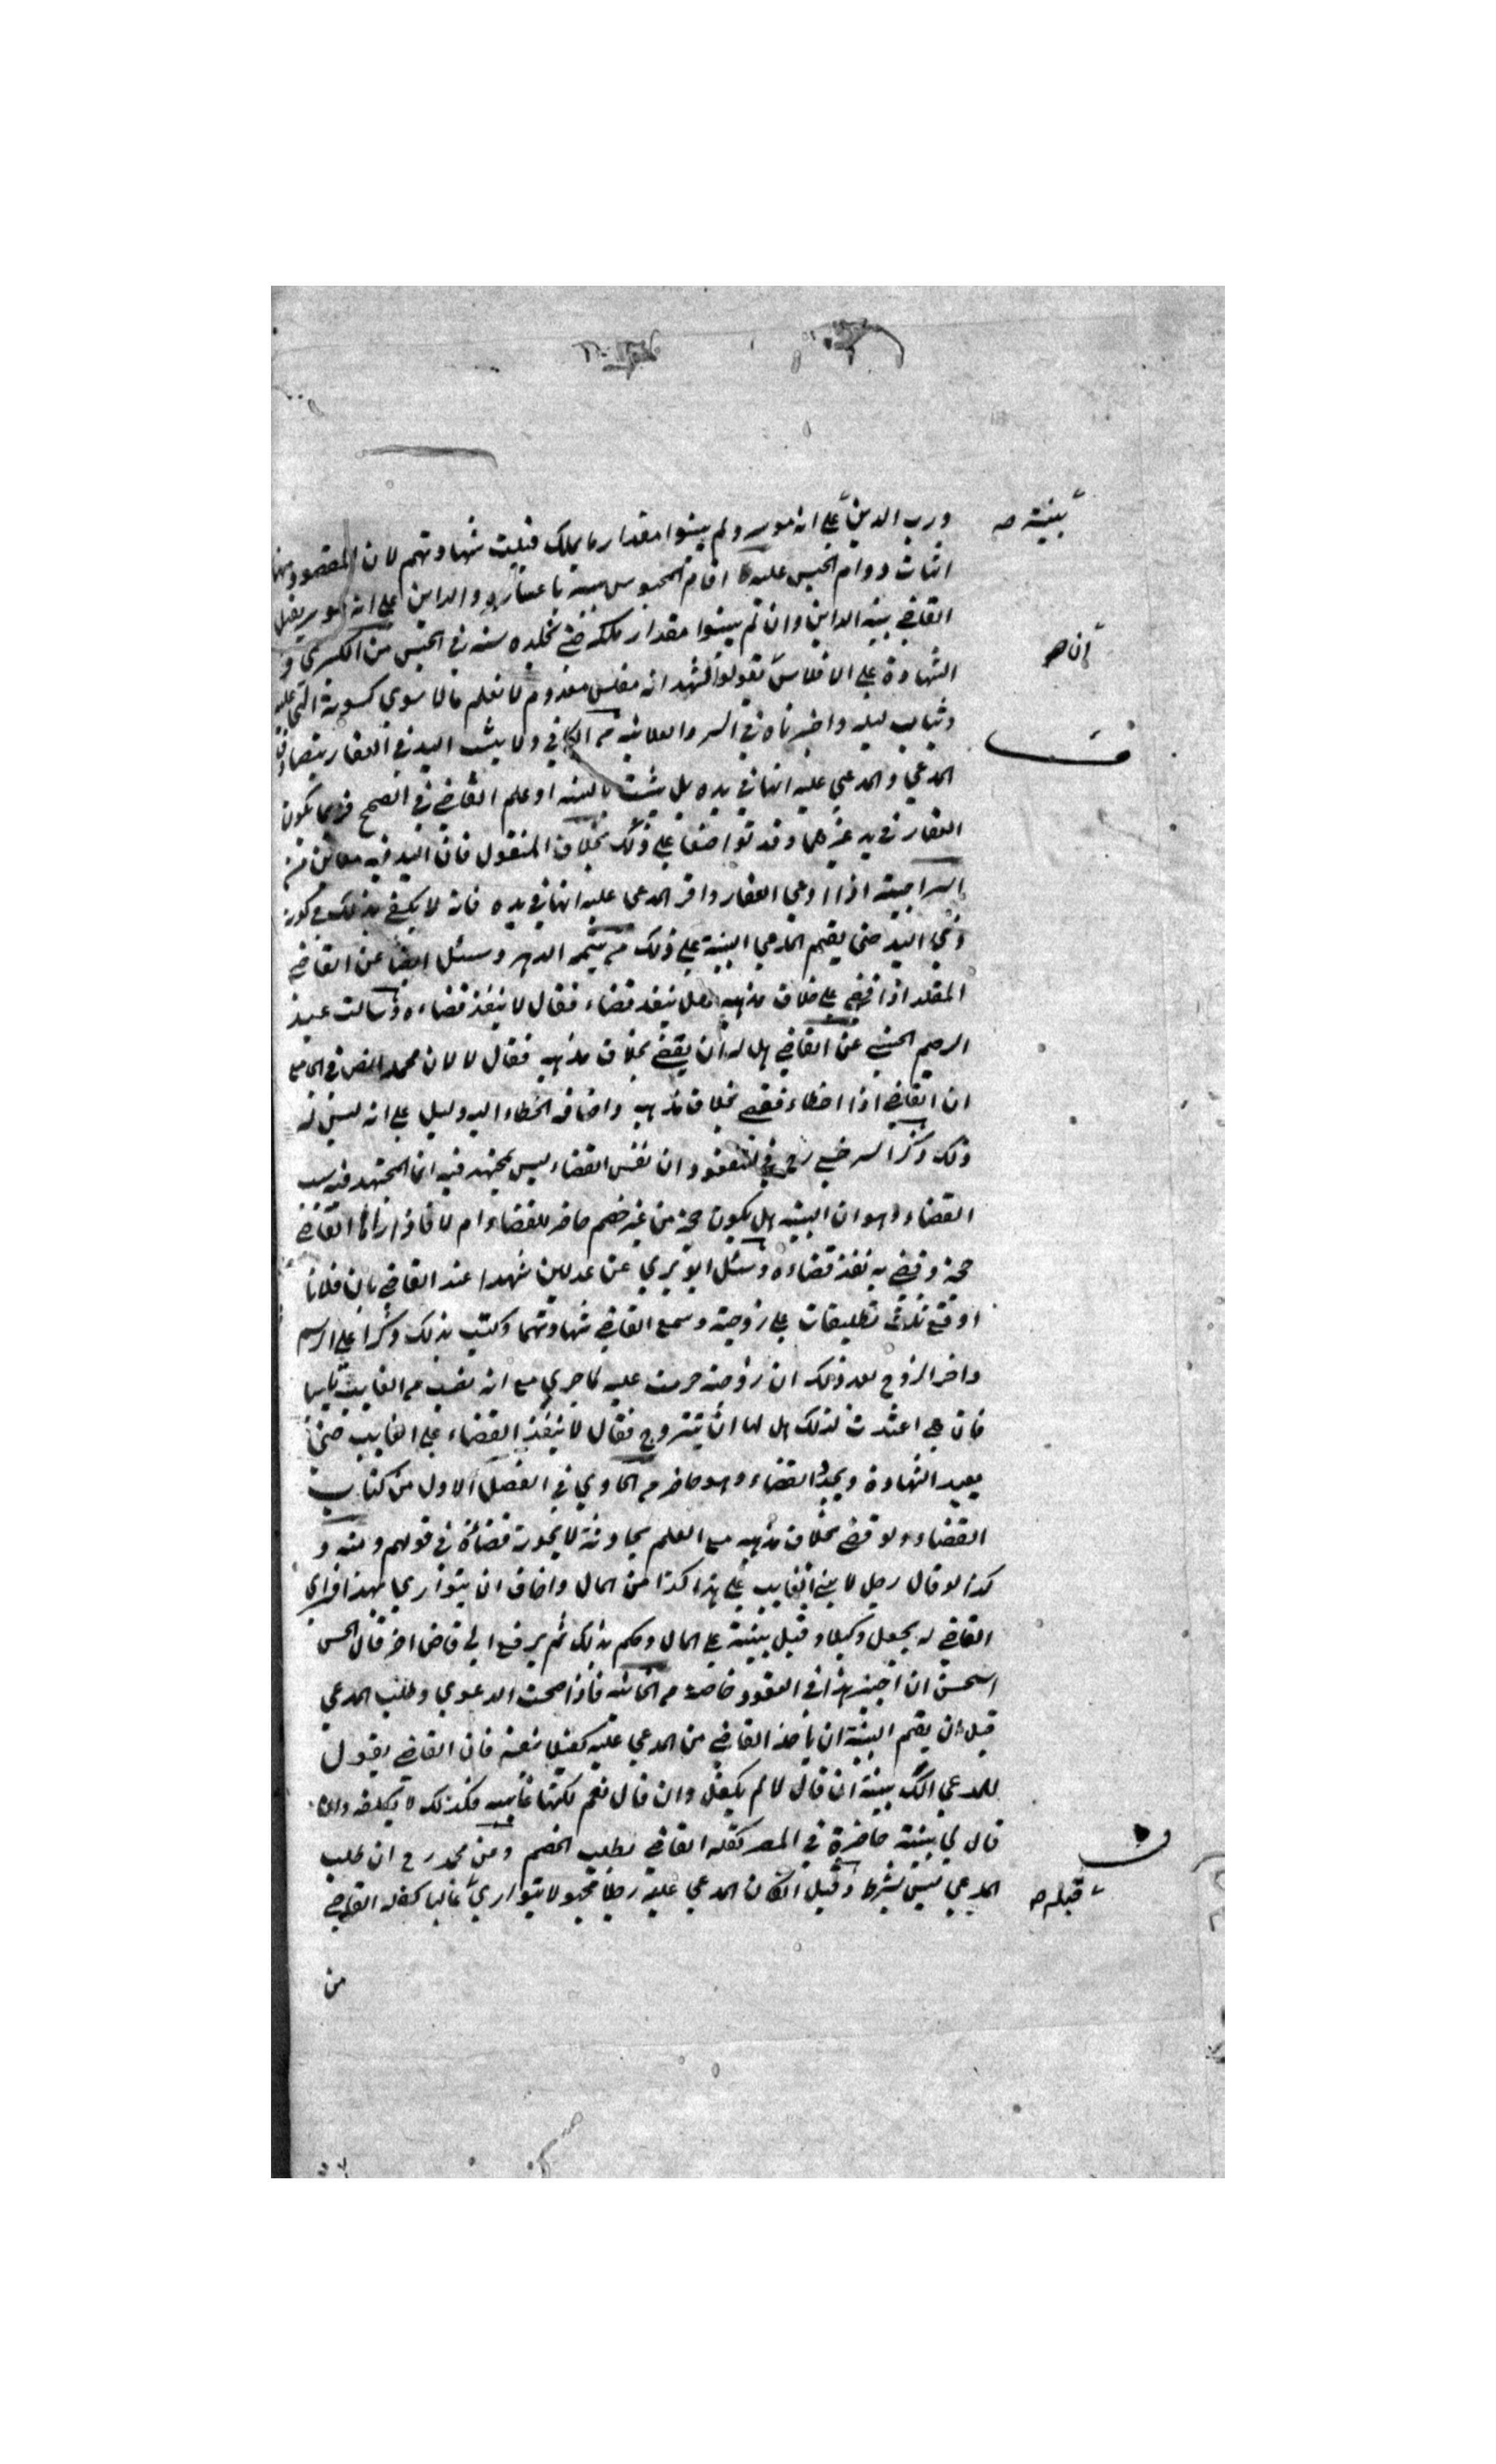 ورب الدين على انه موسر ولم يبينوا مقدار ما يملك قبلت شهادتهم لان المقصود منها
اثبات دوام الحبس عليه اقام المحبوس بينة باعساره والداين على انه موسر يقبل
القاضي بينة الداين وان لم يبينوا مقدار ملكه حتى تخلده سنة في الحبس من الكبرى و
الشهادة على الافلاس تقولوا نشهد انه مفلس معدوم لا نعلم مالا سوى كسوته التي عليه
وثياب ليله واختبرناه في السر والعلانية م الكافي ولا يثبت اليد في العقار بتصادق
المدعي والمدعي عليه انها في يده بل يثبت بالبينة او علم القاضي في الصحيح فربما يكون
العقار في يد غيرهما وقد تواضعا على ذلك بخلاف المنقول فان اليد فيه معاين م
السراجية اذا ادعي العقار واقر المدعي عليه انها في يده فانه لا يكتفي بذلك
ذي اليد حتى يقيم المدعي البينة على ذلك م يتيمة الدهر وسئل ايضا عن القاضي
المقلد اذا قضي على خلاف مذهبه هل ينفذ قضاء فقال لا ينفذ قضاءه وسالت عبد
الرحيم عن القاضي هل له ان يقضي بخلاف مذهبه فقال لا لان محمدا نص في الجامع
ان القاضي اذا اخطاء فقضي بخلاف مذهبه واضافه الخطاء اليه دليل على انه ليس له
ذلك وذكر السرخسي رح في المفقود ان نفس القضاء ليس بمجتهد فيه انما المجتهد فيه سبب
القضاء وهو ان البينة هل يكون حجة من غير خصم حاضر للقضاء ام لا فاذا راها القاضي
حجة وقضي به نفذ قضاءه وسئل عن عدلين شهدا عند القاضي بان فلانا
اوقع ثلاث تطليقات على زوجته وسمع القاضي شهادتهما وكتب بذلك ذكرا على الرسم
واخبر الزوج بعد ذلك ان زوجته حرمت عليه لما جري مع انه نصب م الغايب نايبا
فان هي اعتدت لذلك هل لها ان تتزوج فقال لا ينفذ القضاء على الغايب حتى
يعيد الشهادة ويجدد القضاء وهو حاضر م الحاوي في الفصل الاول من كتاب
القضاء ولو قضي بخلاف مذهبه مع العلم بحادثة لا يجوز قضاؤه في قولهم ومنه و
كذا لو قال رجل لا بينة الغايب علي هذا كذا من المال واخاف ان يتواري فهذا فراي
القاضي له يجعل وكيلا وقبل بينته على المال وحكم بذلك ثم يرفع الي قاض اخر قال الحسن
استحسن ان اجيز هذا في العقود خاصة م الخانية فاذا صحت الدعوي وطلب المدعي
قبل ان يقيم البينة ان ياخذ القاضي من المدعي عليه كفيلا بنفسه فان القاضي يقول
للمدعي الك بينة ان قال لا لم يكفل وان قال نعم لكنها غايبة فكذلك لا يكلفه وان
قال لي بينة حاضرة في المصر كفله القاضي بطلب الخصم وعن محمد رح ان طلب
المدعي ليس بشرط وقيل ان كان المدعي عليه رجلا مجهولا يتواري غالبا كفله القاضي
من
بينة صح
ان صح
ف
ف
قبله صح